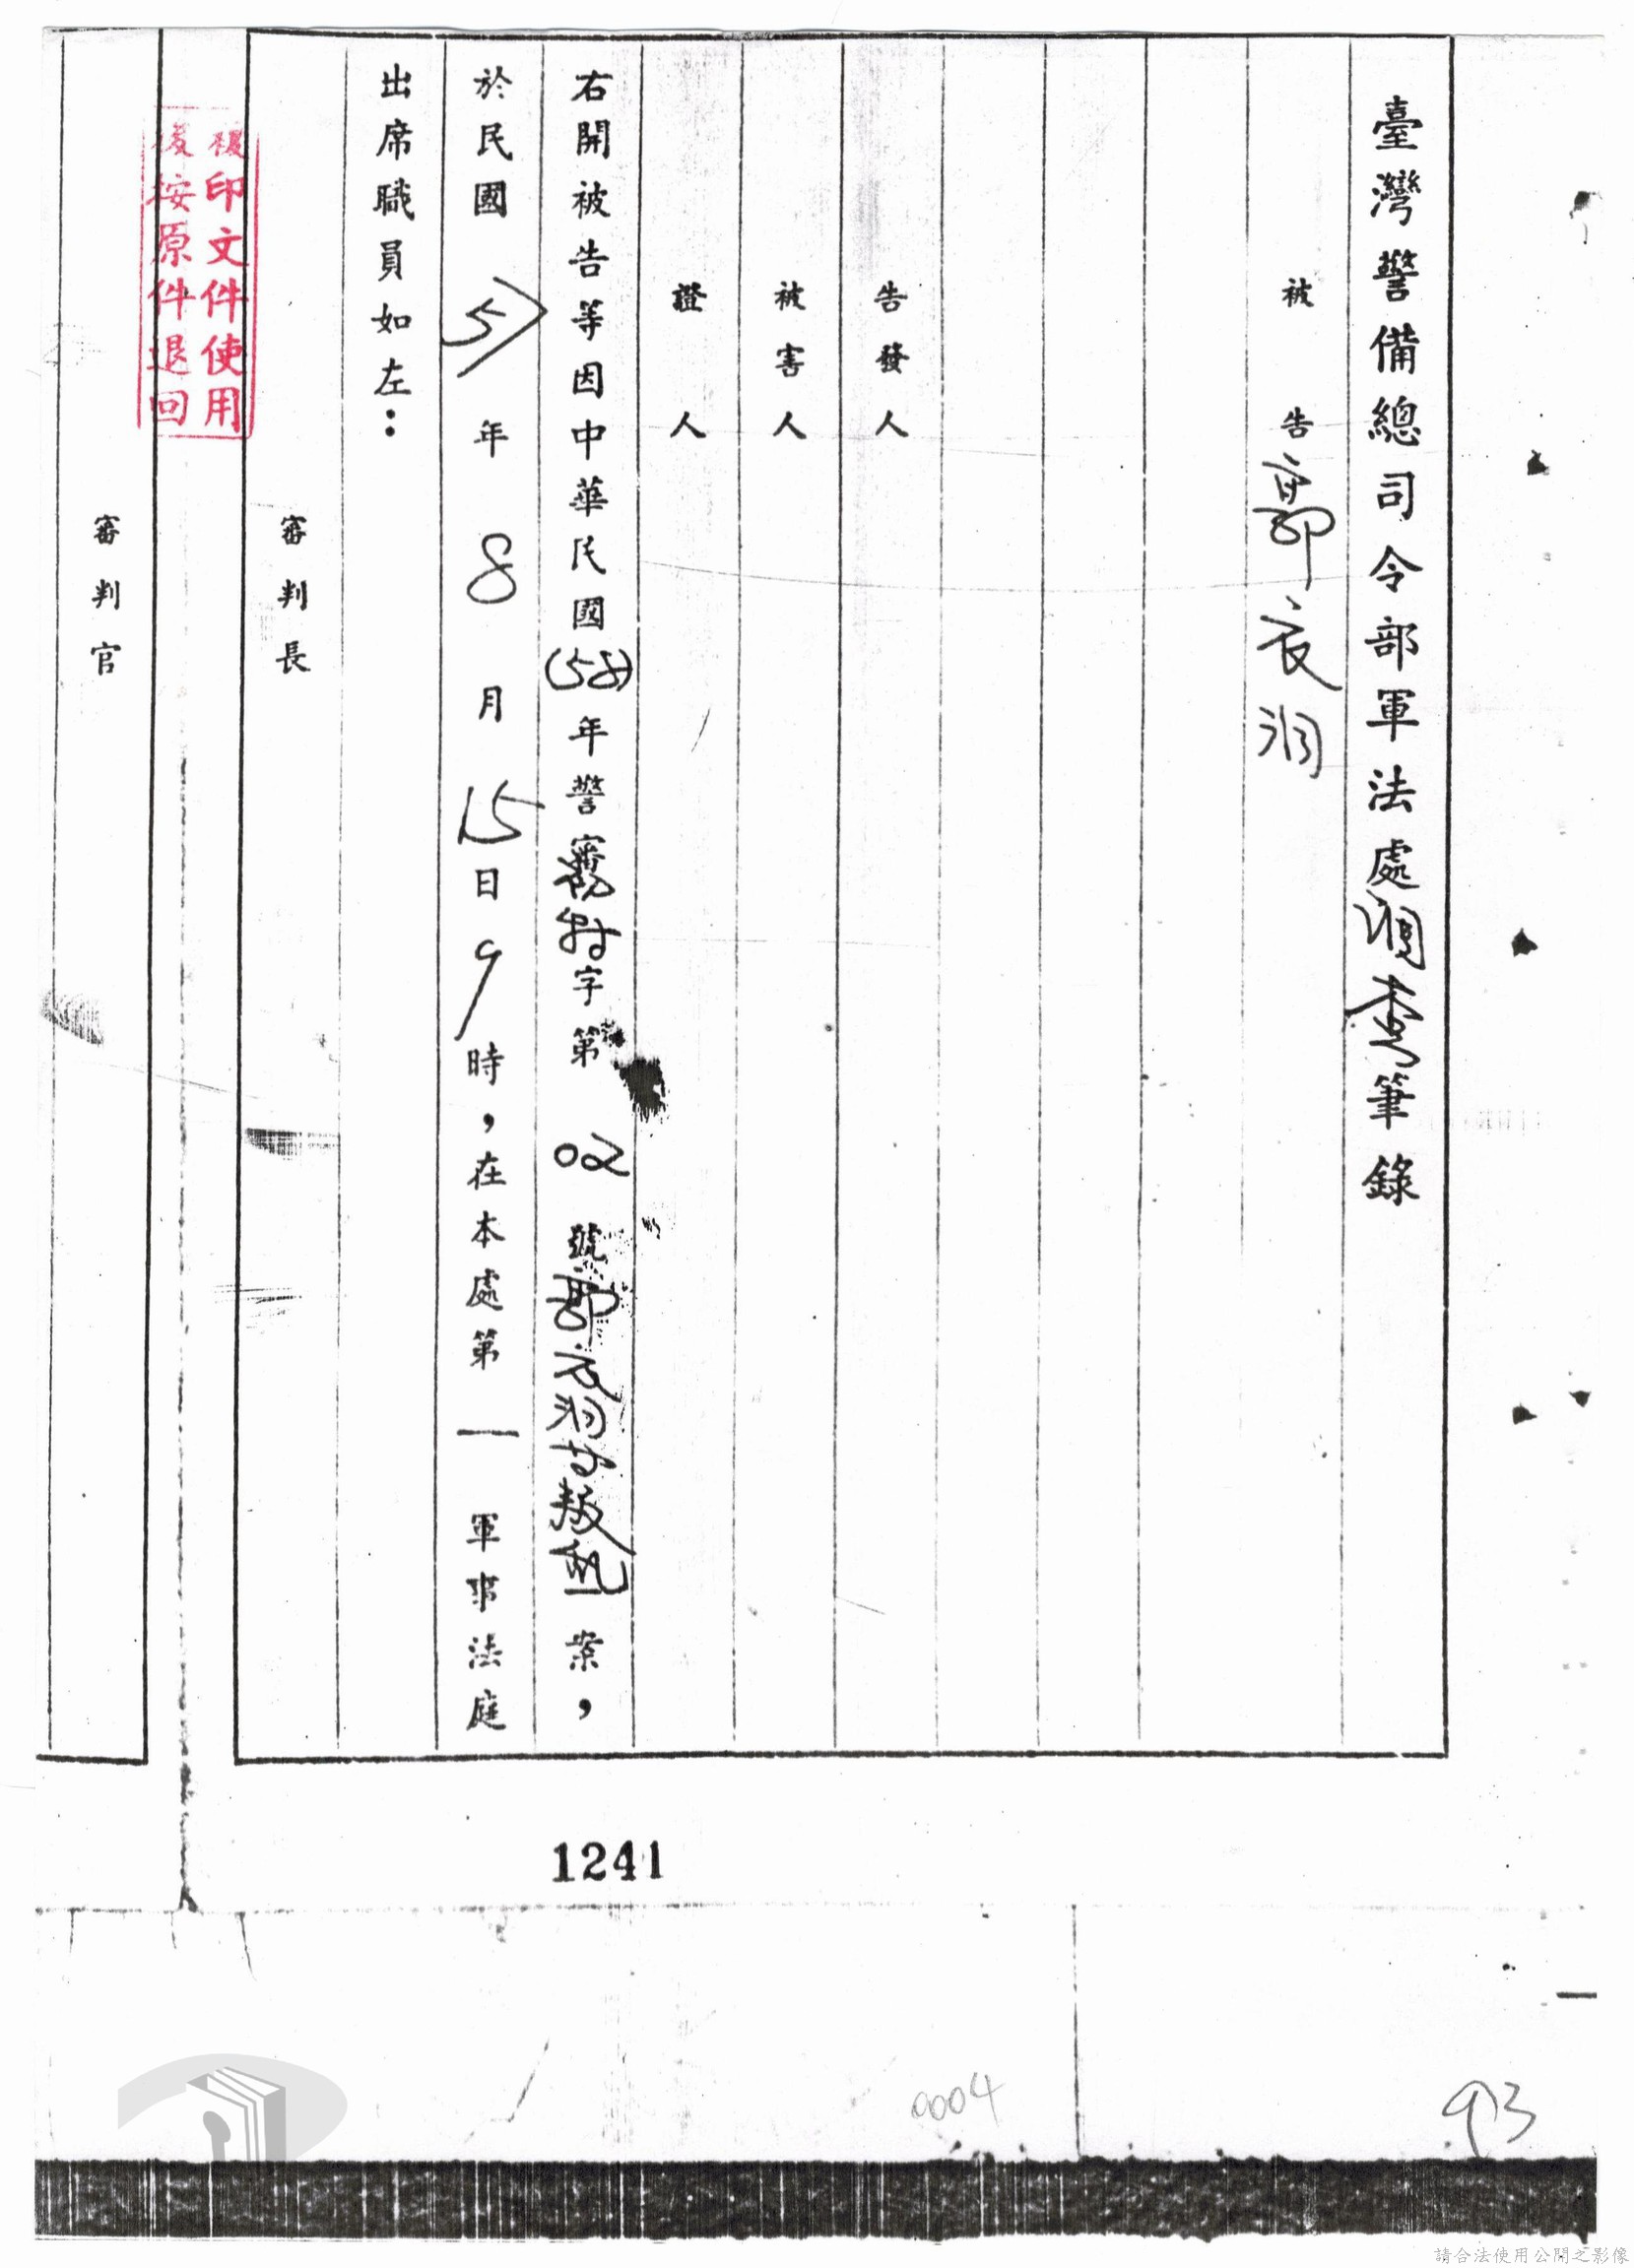 臺灣警備總司令部軍法處調查筆錄
被告郭衣洞
告發人
被害人
證人
右開被告等因中華民國(58)年警審特字第02號郭衣洞叛亂一案，
於民國57年8月15日9時，在本處第一軍事法庭
出席職員如左：
審判長
複印文件使用
後按原件退回
審判官
1241
0004
93
請合法使用公開之影像